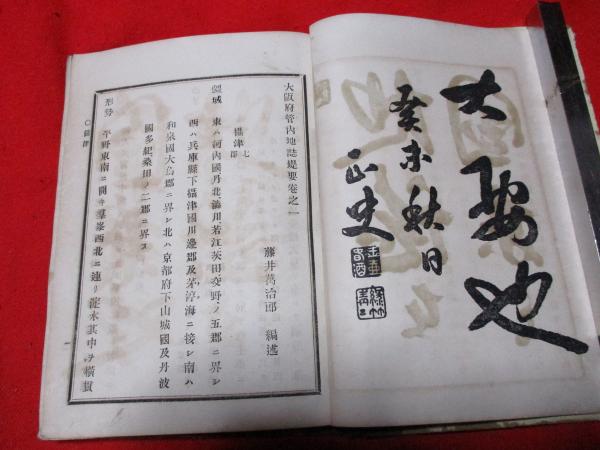 大要也
癸未秋日
正史
大阪府管内地誌提要卷之一
藤井萬治郎 編述
攝津 七郡
疆域 東ハ河内國丹北澁川若江茨田交野ノ五郡ニ界シ
西ハ兵庫縣下攝津國川邊郡及茅渟海ニ接シ南ハ
和泉國大鳥郡ニ界シ北ハ京都府下山城國及丹波
國多紀桑田ノ二郡ニ界ス
形勢 平野東南ニ開キ羣峯西北ニ連リ淀水其中ヲ橫貫
〇攝津
一